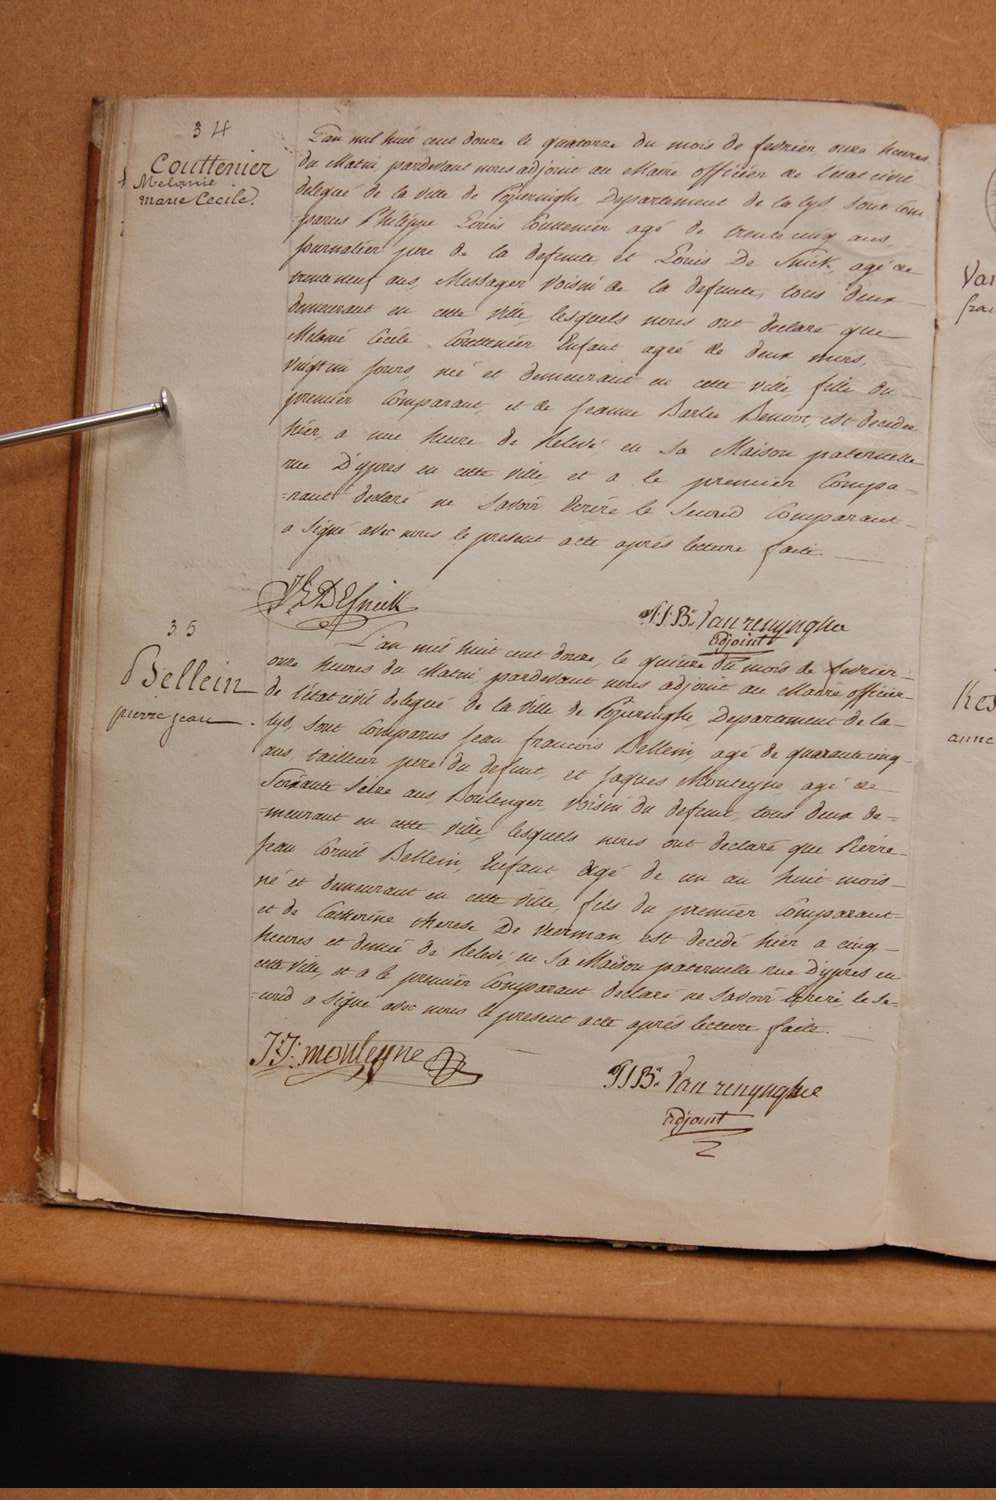 34
Couttenier
Melanie
marie Cecile.
L'an mil huit cent douze le quatorze du mois de fevrier, onze heures
du Matin pardevant nous adjoint au Maire officier de l'etat civil
delegué de la ville de Poperinghe Departement de la lys sont Com
=parus Philippe Louis Couttenier agé de trente cinq ans,
Journalier pere de la defunte et Louis De Snick, agé de
trente neuf ans, Messager voisin de la defunte, tous deux
demeurant en cette ville, lesquels nous ont declaré que
Melanie Cécile Couttenier Enfant agée de deux mois,
vingt un jours, née et demeurant en cette ville, fille du
premier Comparant, et de Jeanne Barbe Benoot, est decedée
hier, a une heure de Relevé, en sa Maison paternelle
rue D'ypres en cette ville, et a le premier Compa-
=rant declaré ne savoir écrire le second Comparant
a signé avec nous le present acte aprés lecture faite.
DESnick
P.J.Bte Vanrenynghe
adjoint
35
Bellein
pierre jean
L'an mil huit cent douze, le quinze du mois de fevrier
onze heures du Matin, pardevant nous adjoint au Maire officier
de l'état civil delegué de la ville de Poperinghe, Departement de la
lys, sont Comparus Jean francois Bellein, agé de quarante cinq
ans, tailleur pere du defunt, et Jaques Monteyne agé de
Soixante Seize ans, Boulenger voisin du defunt, tous deux de=
=meurant en cette ville, lesquels nous ont declaré que Pierre
Jean Cornil Bellein, Enfant agé de un an huit mois
né et demeurant en cette ville, fils du premier Comparant
et de Catherine therese De Veerman, est decedé hier a cinq
heures et demie de Relevé en sa Maison paternelle rue D'ypres en
cette ville, et a le premier Comparant declaré ne savoir écrire, le se=
=cond a signe avec nous le present acte aprés lecture faite.
J:J: monteyne
PJBte Vanrenynghe
adjoint
Van
fran
Kes
anne